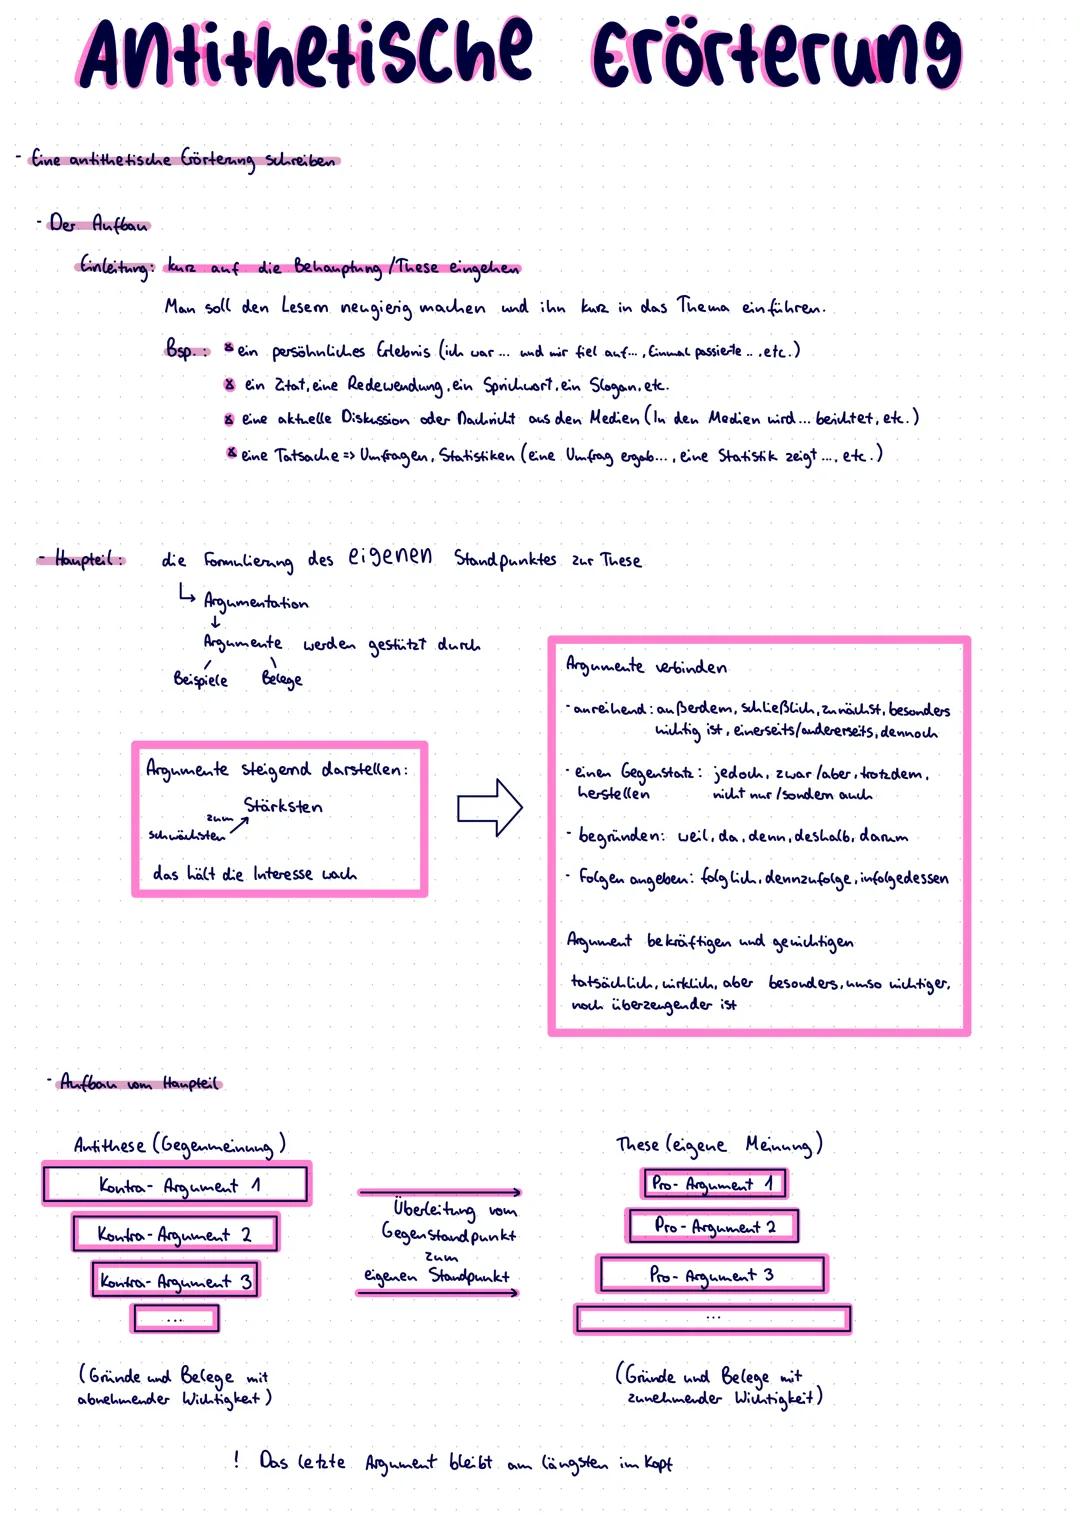 Antithetische Erörterung
- Eine antithetische Erörterung schreiben
- Der Aufbau
Einleitung: kurz auf die Behauptung /These eingehen
Man soll den Lesern neugierig machen und ihn kurz in das Thema einführen.
Bsp.: x ein persöhnliches Erlebnis (ich war ... und mir fiel auf..., Einmal passierte ..., etc.)
x ein Zitat, eine Redewendung, ein Sprichwort, ein Slogan, etc.
x eine aktuelle Diskussion oder Nachricht aus den Medien (In den Medien wird ... beichtet, etc.)
x eine Tatsache => Umfragen, Statistiken (eine Umfrag ergab..., eine Statistik zeigt ..., etc.)
- Haupteil: die Formulierung des eigenen Standpunktes zur These
↳ Argumentation
↓
Argumente werden gestützt durch
Beispiele Belege
Argumente steigernd darstellen:
Stärksten
zum
schwächsten
das hält die Interesse wach
Argumente verbinden
- anreihend: außerdem, schließlich, zunächst, besonders
wichtig ist, einerseits/andererseits, dennoch
- einen Gegenstatz: jedoch, zwar/aber, trotzdem,
herstellen nicht nur /sondern auch
- begründen: weil, da, denn, deshalb, darum
- Folgen angeben: folglich, dennzufolge, infolgedessen
Argument bekräftigen und gewichtigen
tatsächlich, wirklich, aber besonders, umso wichtiger,
noch überzeugender ist
- Aufbau vom Haupteil
Antithese (Gegenmeinung)
Kontra- Argument 1
Kontra- Argument 2
Kontra- Argument 3
...
(Gründe und Belege mit
abnehmender Wichtigkeit)
Überleitung vom
Gegenstandpunkt
zum
eigenen Standpunkt
These (eigene Meinung)
Pro- Argument 1
Pro- Argument 2
Pro- Argument 3
...
(Gründe und Belege mit
zunehmender Wichtigkeit)
! Das letzte Argument bleibt am längsten im Kopf